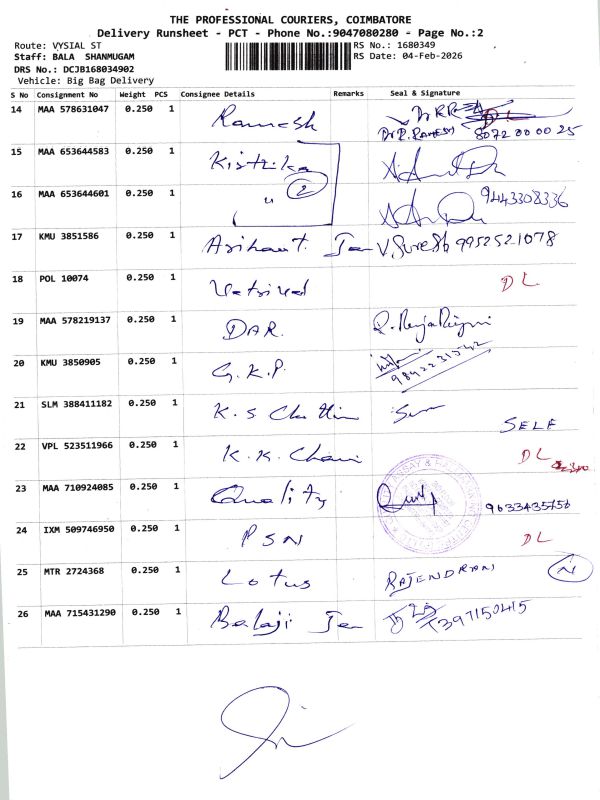 THE PROFESSIONAL COURIERS, COIMBATORE
Delivery Runsheet - PCT - Phone No.:9047080280 - Page No.:2
Route: VYSIAL ST RS No.: 1680349
Staff: BALA SHANMUGAM RS Date: 04-Feb-2026
DRS No.: DCJB168034902
Vehicle: Big Bag Delivery
S No Consignment No Weight PCS Consignee Details Remarks Seal & Signature
14 MAA 578631047 0.250 1 Ramesh Dr R. RAMESH 80720 000 25
15 MAA 653644583 0.250 1
16 MAA 653644601 0.250 1 " 2 9443308336
17 KMU 3851586 0.250 1 Arihant Jan V. Suresh 9952521078
18 POL 10074 0.250 1 DL
19 MAA 578219137 0.250 1 DAR.
20 KMU 3850905 0.250 1 G.K.P. 9842231542
21 SLM 388411182 0.250 1 K.S SELF
22 VPL 523511966 0.250 1 K.K. DL
23 MAA 710924085 0.250 1 Quality 9633435756
24 IXM 509746950 0.250 1 PSN DL
25 MTR 2724368 0.250 1 Lotus RAJENDRAN
26 MAA 715431290 0.250 1 Balaji Jan 7397150415